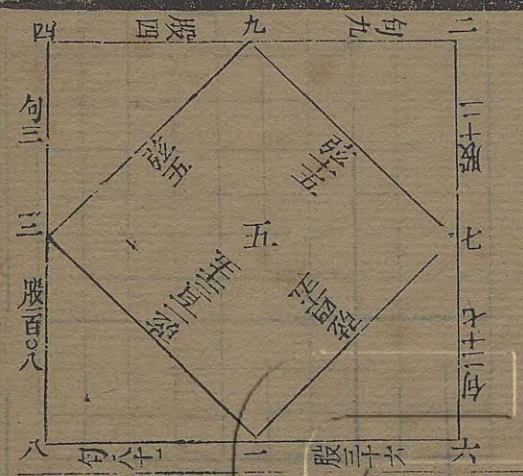 四
股四
九
句九
二
句三
弦五
弦十五
股十二
三
五
七
股一百〇八
弦一百三十五
弦四十五
句二十七
八
句八十一
一
股三十六
六